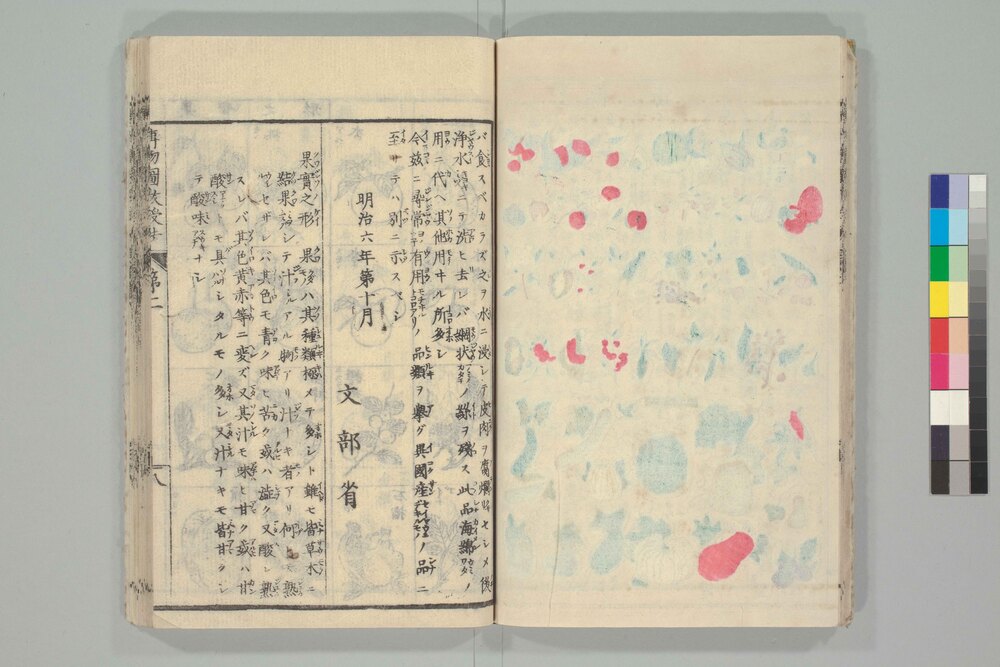 バ食スベカラズ之ヲ水ニ浸シテ皮肉ヲ腐爛セシメ後
浄水ニテ洗ヒ去レバ網状ノ絲ヲ残ス此品海綿ノ
用ニ代ヘ其他用ヰル所多シ
今玆ニ尋常有用ノ品類ヲ擧グ異國産ノ品ニ
至サテハ別ニ示スベシ
明治六年第十月
文部省
果實之形 果ハ其種類極メテ多シト雖ヒ皆草木ニ
結果シテ汁アル物アリ汁ナキ者アリ何レモ熟
セザレバ其色モ青ク味ヒ苦ク或ハ澁ク又酸シ熟
スレバ其色黄赤等ニ変ズ又其汁モ味ヒ甘ク或ハ甘
酸ヲ具シタルモノ多シ又汁ナキモ皆甘クシ
テ酸味ナシ
博物圖教授法
第二
八